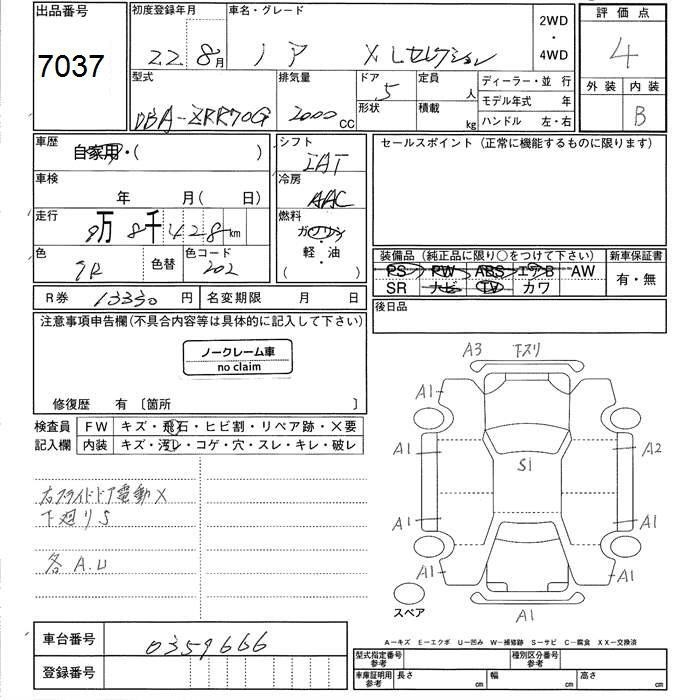 出品番号
7037
初度登録年月
22 8月
車名・グレード
ノア X Lセレクション
2WD
・
4WD
評価点
4
外装 内装
B
型式
DBA-ZRR70G
排気量
2000 CC
ドア
5
形状
定員
人
積載
kg
ディーラー・並行
モデル年式 年
ハンドル 左・右
車歴
自家用・( )
車検
年 月( 日)
走行
9万 8千 428 km
色
色替
色コード
202
シフト
IAT
冷房
AAC
燃料
ガソリン
軽・油
( )
セールスポイント(正常に機能するものに限ります)
装備品(純正品に限り○をつけて下さい)
PS PW ABS エアB AW
SR ナビ TV カワ
新車保証書
有・無
R券 13330円
名変期限 月 日
後日品
注意事項申告欄(不具合内容等は具体的に記入して下さい)
ノークレーム車
no claim
修復歴 有 〔箇所 〕
検査員
記入欄
FW キズ・飛石・ヒビ割・リペア跡・X要
内装 キズ・汚レ・コゲ・穴・スレ・キレ・破レ
右スライドドア電動X
下廻りS
各A.U
A3 下スリ
A1
A1
A2
S1
A1
A1
A1
A1
A1
スペア
A-キズ E-エクボ U-凹み W-補修跡 S-サビ C-腐食 XX-交換済
車台番号
0359666
登録番号
型式指定番号
参考
種別区分番号
参考
車庫証明用
参考
長さ cm
幅 cm
高さ cm